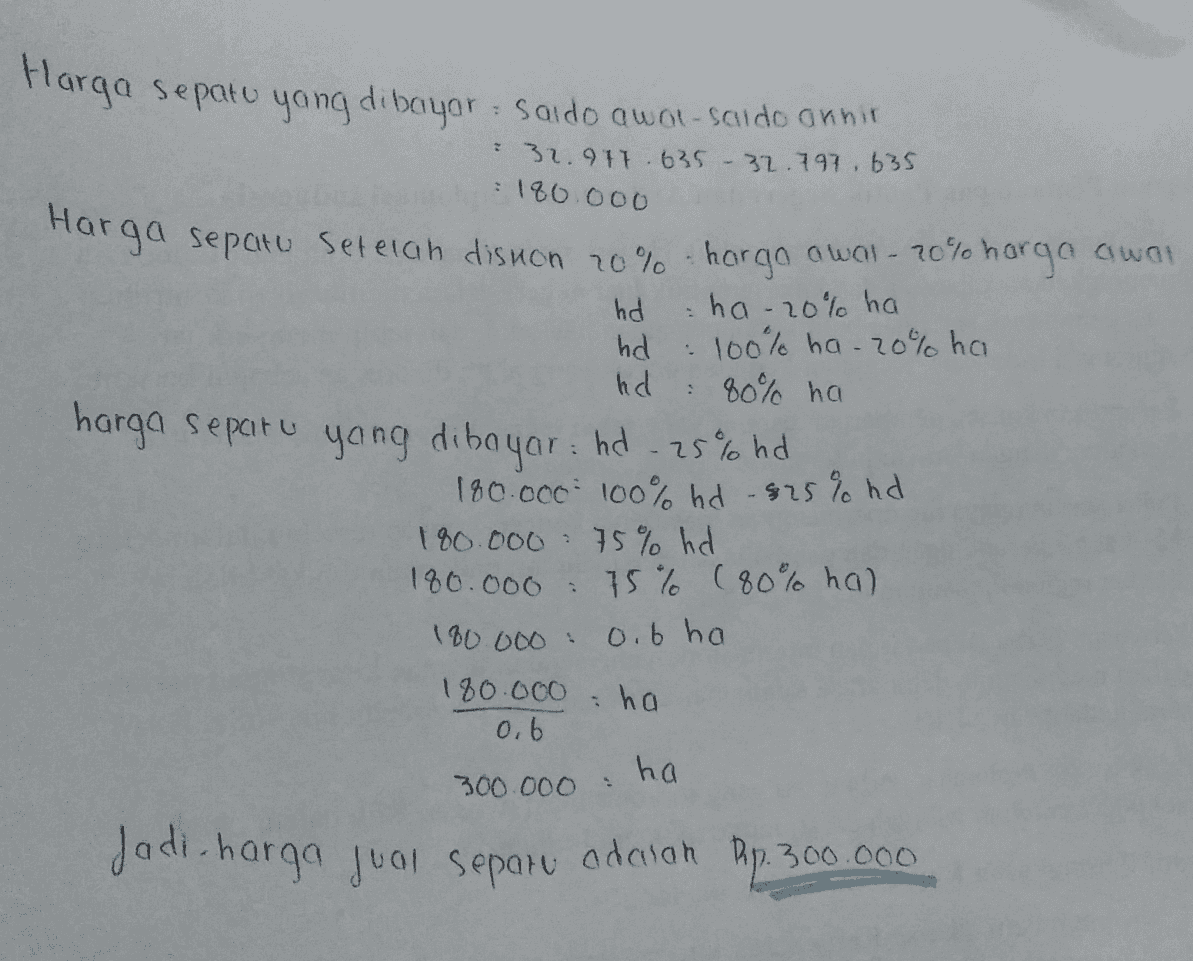 Harga sepatu yang dibayar = saldo awal - saldo akhir
= 32.977.635 - 32.797.635
= 180.000
Harga sepatu setelah diskon 20% = harga awal - 20% harga awal
hd = ha - 20% ha
hd = 100% ha - 20% ha
hd = 80% ha
harga sepatu yang dibayar = hd - 25% hd
180.000 = 100% hd - 25% hd
180.000 = 75% hd
180.000 = 75% (80% ha)
180 000 = 0.6 ha
180.000 = ha
0,6
300.000 = ha
Jadi, harga jual sepatu adalah Rp. 300.000